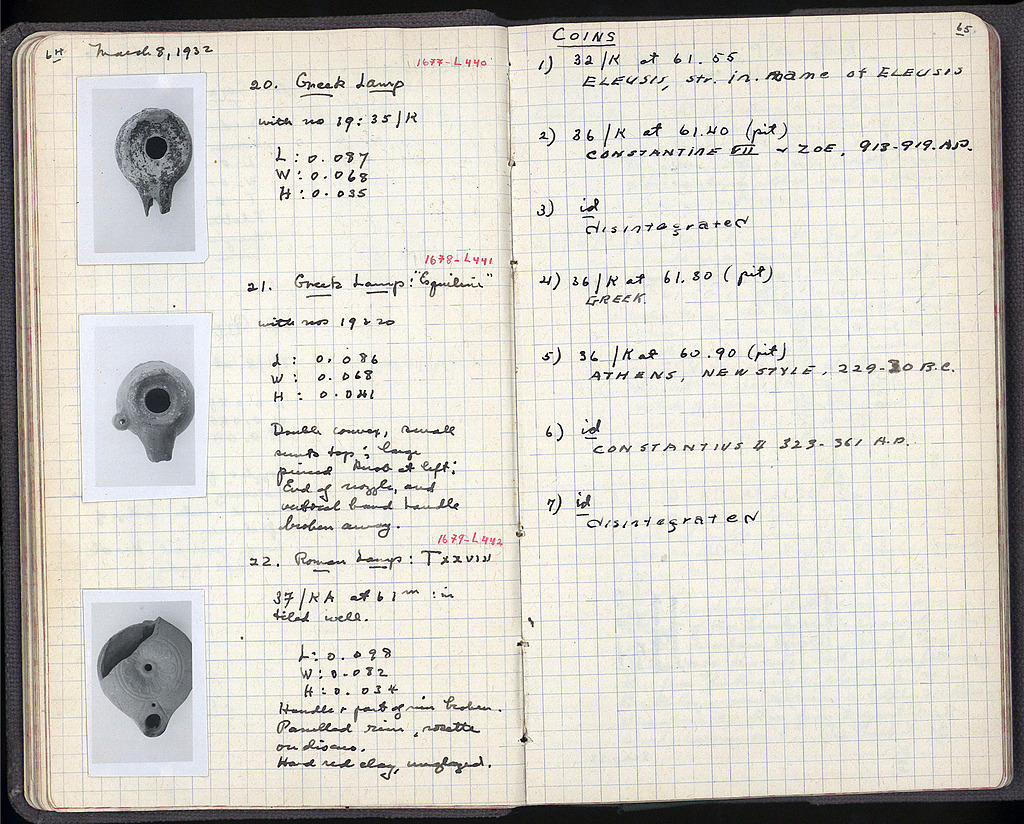 64
March 8, 1932
1677-L440
20. Greek Lamp
with no 19: 35/K
L: 0.087
W: 0.068
H: 0.035
1678-L441
21. Greek Lamp: "Esquiline"
with nos 19 & 20
L: 0.086
W: 0.068
H: 0.041
Double convex, small
sunk top; large
pierced knob at left;
End of nozzle, and
vertical band handle
broken away.
1679-L442
22. Roman Lamp: T XXVIII
37/KA at 61m: in
tiled well.
L: 0.098
W: 0.082
H: 0.034
Handle & part of rim broken.
Panelled rim, rosette
on discus.
Hard red clay, unglazed.
65
COINS
1) 32/K at 61.55
ELEUSIS, str. in name of ELEUSIS
2) 36/K at 61.40 (pit)
CONSTANTINE VII & ZOE. 913-919. A.D.
3) id
disintegrated
4) 36/K at 61.80 (pit)
GREEK.
5) 36/K at 60.90 (pit)
ATHENS, NEW STYLE, 229-30 B.C.
6) id
CONSTANTIUS II 323-361 A.D.
7) id
disintegrated